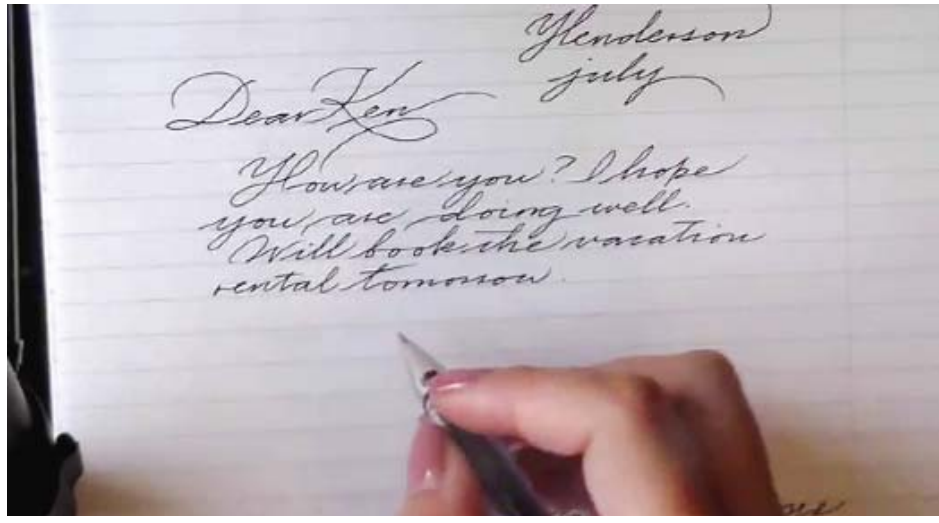 Henderson
july
Dear Ken
How are you? I hope
you are doing well.
Will book the vacation
rental tomorrow.